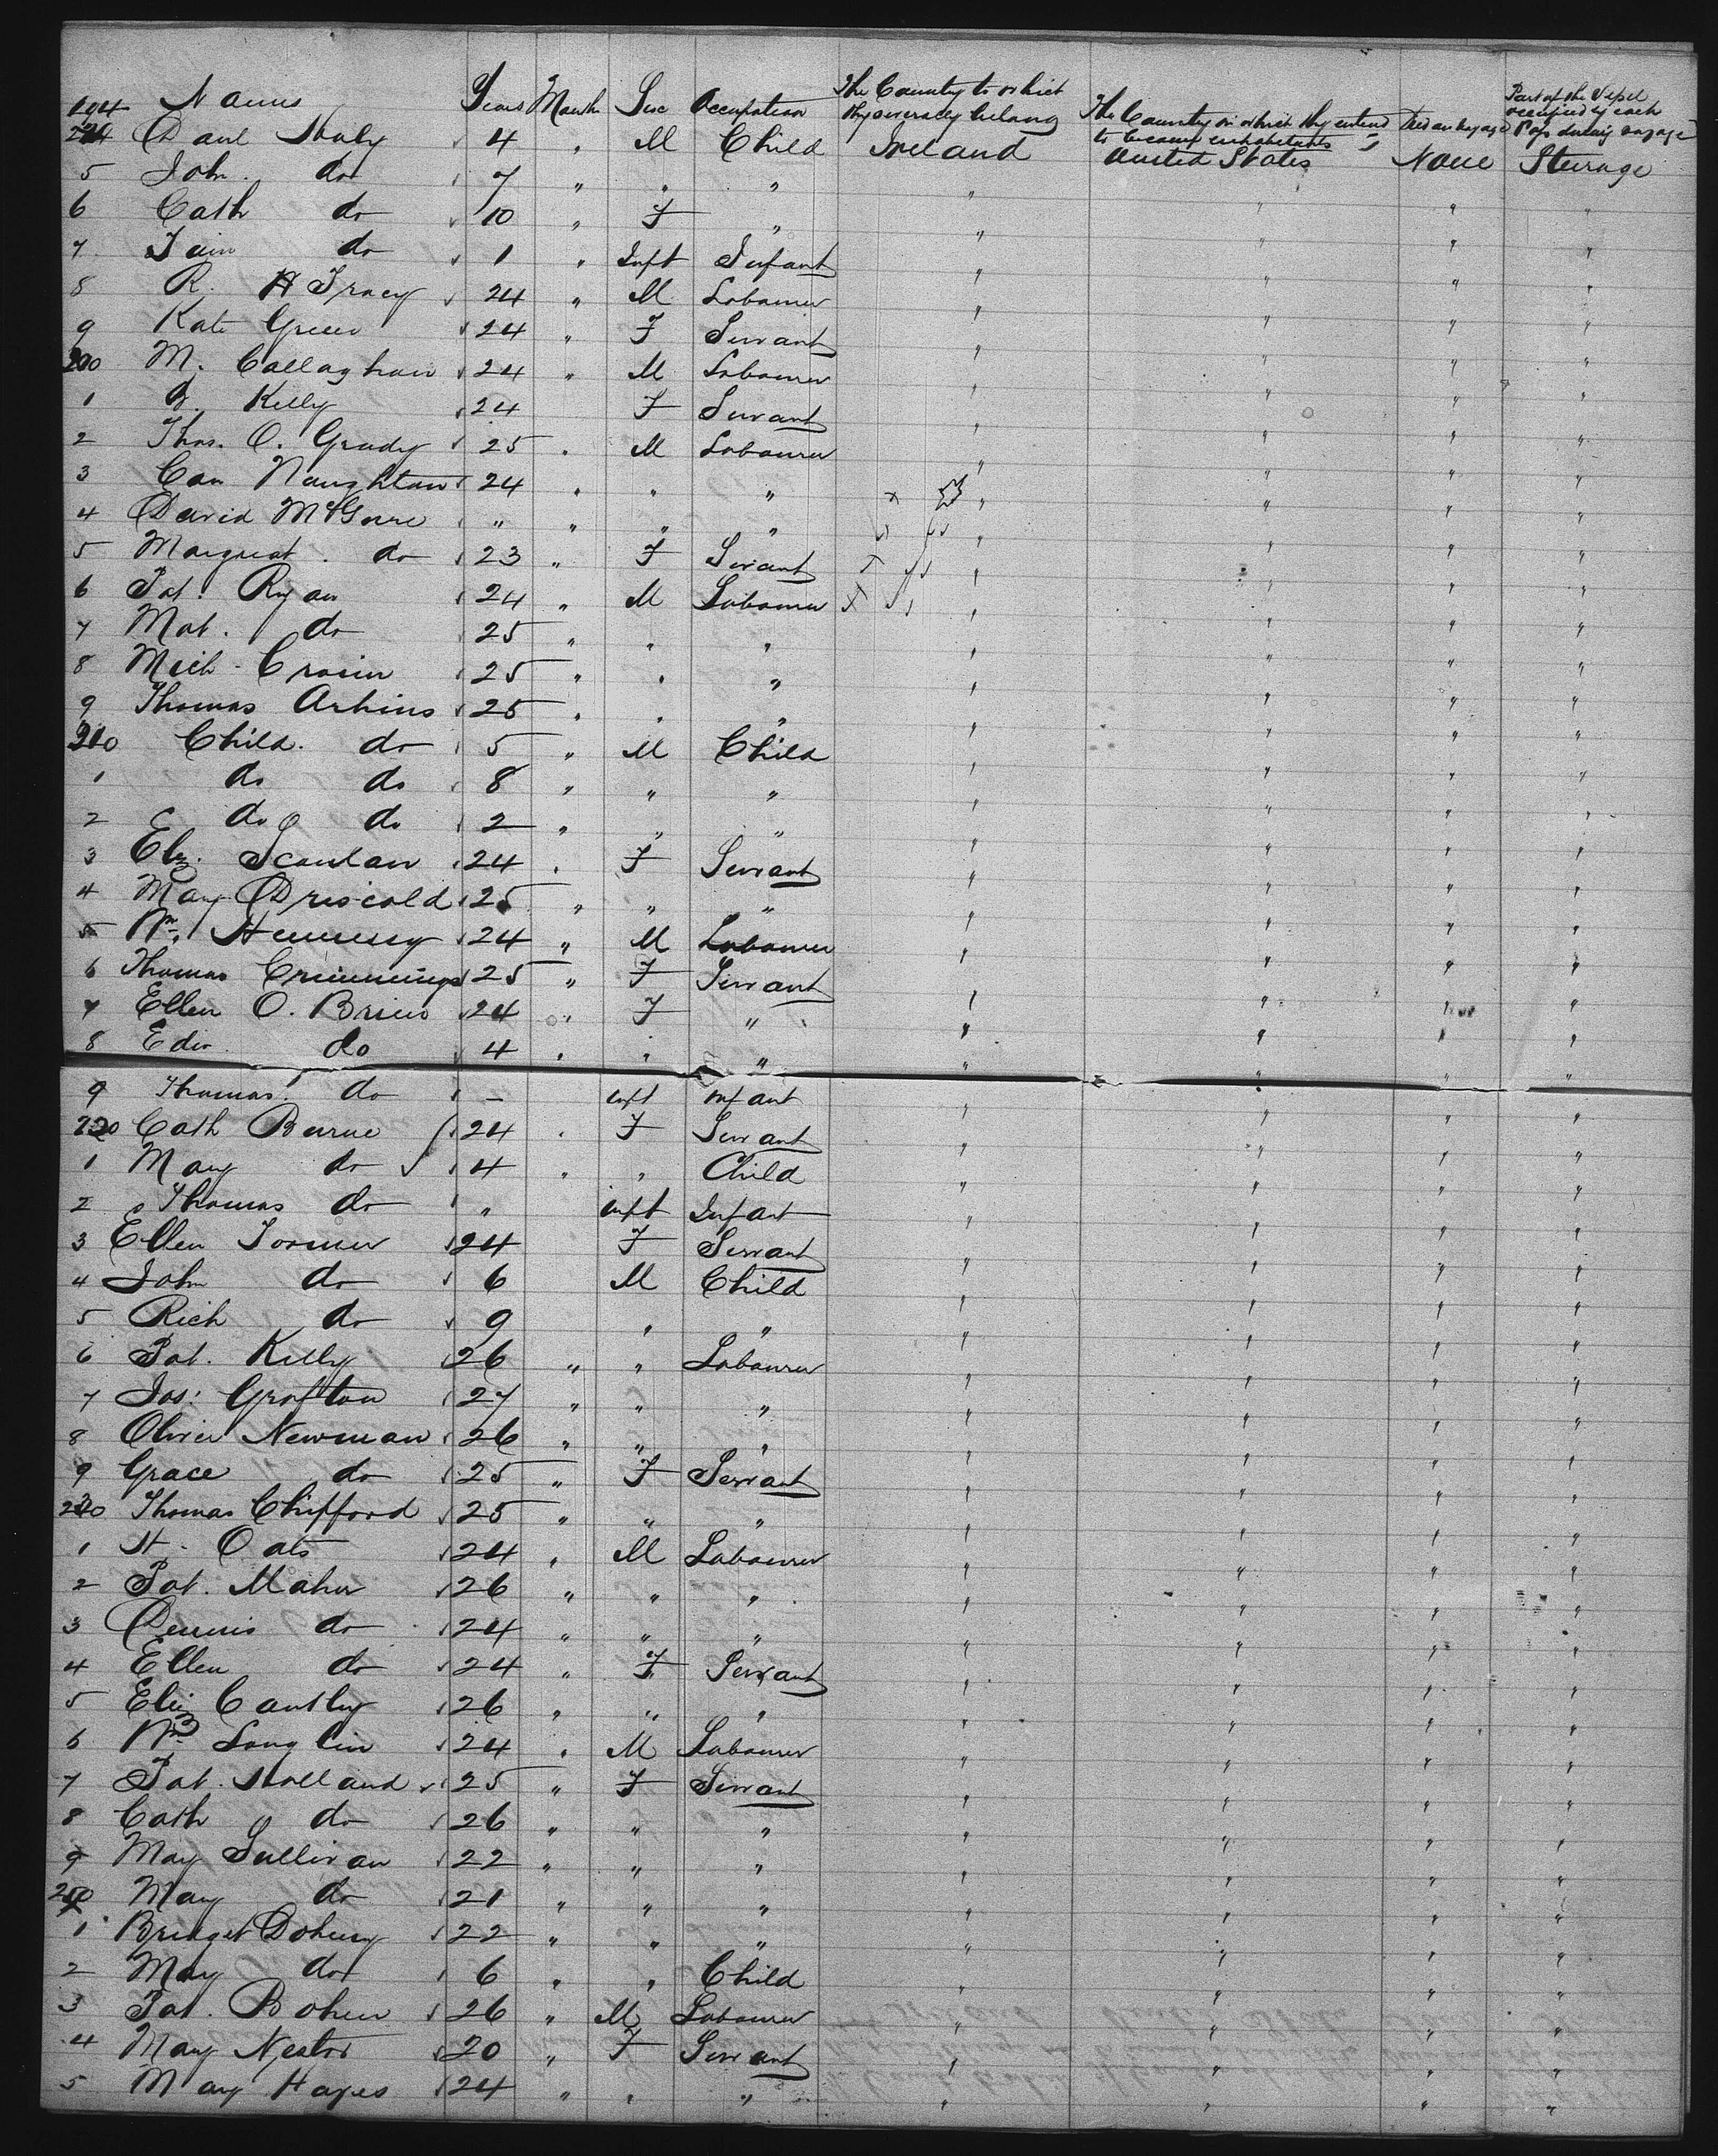 Names Years Month Sex Occupation The Country to which they severally belong The Country in which they intend to become inhabitants Died on voyage Part of the Vessel occupied by each Pass during voyage
194 Danl Healy 4 " M Child Ireland United States None Steerage
5 John do 7 " " " " " " "
6 Cath do 10 " F " " " " "
7 do 1 " Inft Infant " " " "
8 R. H Tracy 24 " M Labourer " " " "
9 Kate Green 24 " F Servant " " " "
200 M. Callaghan 24 " M Labourer " " " "
1 B. Kelly 24 F Servant " " " "
2 Thos. O. Grady 25 " M Labourer " " " "
3 Con Naughton 24 " " " " " " "
4 David " " " " " " " "
5 Margreat do 23 " F Servant " " " "
6 Pat. Ryan 24 " M Labourer " " " "
7 Mat. do 25 " " " " " " "
8 Mich Cronin 25 " " " " " " "
9 Thomas Arkins 25 " " " " " " "
210 Child. do 5 " M Child " " " "
1 do do 8 " " " " " " "
2 do do 2 " " " " " " "
3 Elz. Scanlan 24 " F Servant " " " "
4 Mary Driscold 25 " " " " " " "
5 Wm. Hennessy 24 " M Labourer " " " "
6 Thomas Crimmings 25 " F Servant " " " "
7 Ellen O. Brien 24 " F " " " " "
8 Edw. do 4 " " " " " " "
9 Thomas do - inft infant " " " "
220 Cath Burne 24 " F Servant " " " "
1 Mary do 4 " " Child " " " "
2 Thomas do " inft Infant " " " "
3 Ellen 24 F Servant " " " "
4 John do 6 M Child " " " "
5 Rich do 9 " " " " " "
6 Pat. Kelly 26 " " Labourer " " " "
7 Jos: Grafton 27 " " " " " " "
8 Oliver Newman 26 " " " " " " "
9 Grace do 25 " F Servant " " " "
230 Thomas Chifford 25 " " " " " " "
1 H. Oats 24 " M Labourer " " " "
2 Pat. Maher 26 " " " " " " "
3 Dennis do 24 " " " " " " "
4 Ellen do 24 " F Servant " " " "
5 Eliz Cantley 26 " " " " " " "
6 Wm Longlin 24 " M Labourer " " " "
7 Pat. Holland 25 " F Servant " " " "
8 Cath do 26 " " " " " " "
9 Mary Sullivan 22 " " " " " " "
Mary do 21 " " " " " " "
1 Bridget Doheny 22 " " " " " " "
2 Mary do 6 " " Child " " " "
3 Pat. Bohen 26 " M Labourer " " " "
4 Mary Nestor 20 " F Servant " " " "
5 Mary Hayes 24 " " " " " " "